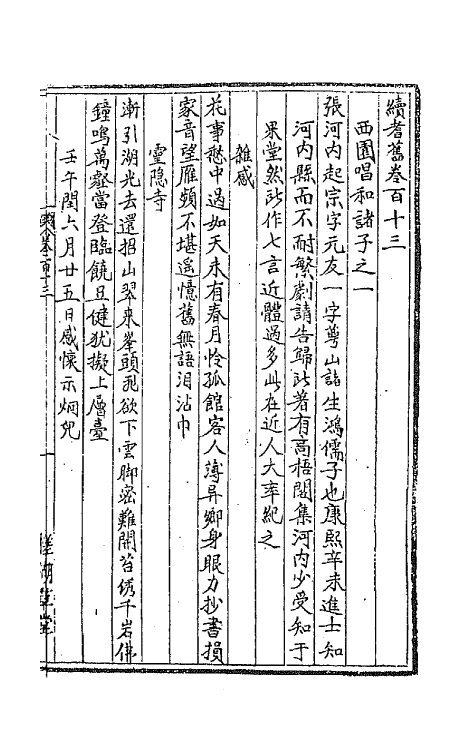 續耆舊卷百十三
西園唱和諸子之一
張河内起宗字元友一字蓴山諸生鴻儒子也康熙辛未進士知
河内縣而不耐繁劇請告歸所著有高梧閣集河内少受知于
果堂然所作七言近體過多此在近人大率紀之
雜感
花事愁中過如天未有春月憐孤館客人薄异鄉身眼力抄書損
家音望雁頻不堪遥憶舊無語泪沾巾
靈隐寺
漸引湖光去還招山翠來峯頭飛欲下雲脚密難開苔綉千岩佛
鐘鳴萬壑當登臨饒且健犹擬上層臺
壬午閏六月廿五日感懷示炯兒